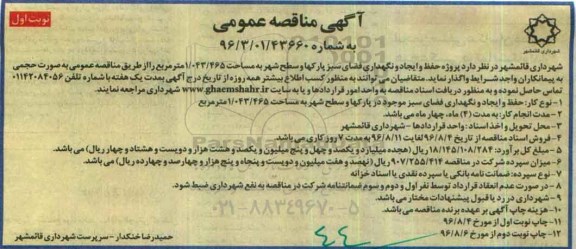 نوبت اول
آگهی مناقصه عمومی
به شماره ۹۶/۳/۰۱/۴۳۶۶۰
شهرداری قائمشهر
شهرداری قائمشهر در نظر دارد پروژه حفظ و ایجاد و نگهداری فضای سبز پارکها و سطح شهر به مساحت ۱/۰۴۳/۴۶۵مترمربع را از طریق مناقصه عمومی به صورت حجمی
به پیمانکاران واجد شرایط واگذار نماید. متقاضیان می توانند به منظور کسب اطلاع بیشتر همه روزه از تاریخ درج آگهی بمدت یک هفته با شماره تلفن ۰۱۱۴۲۰۸۴۰۵۶
تماس حاصل نموده و به منظور دریافت اسناد مناقصه به واحد امور قراردادها و یا به سایت www.ghaemshahr.ir شهرداری مراجعه نمایند.
۱- نوع کار: حفظ و ایجاد و نگهداری فضای سبز موجود در پارکها و سطح شهر به مساحت ۱/۰۴۳/۴۶۵مترمربع
۲- مدت انجام کار: به مدت (۴) ماه، چهار ماه می باشد.
۳- محل تحویل و اخذ اسناد: واحد قراردادها - شهرداری قائمشهر
۴- فروش اسناد مناقصه از تاریخ ۹۶/۸/۴ لغایت ۹۶/۸/۱۱ به مدت ۷ روز کاری می باشد.
۵- مبلغ کل برآورد: ۱۸/۱۴۵/۱۰۸/۲۸۴ ریال (هجده میلیارد و یکصد و چهل و پنج میلیون و یکصد و هشت هزار و دویست و هشتاد و چهار ریال) می باشد.
۶- میزان سپرده شرکت در مناقصه ۹۰۷/۲۵۵/۴۱۴ ریال (نهصد و هفت میلیون و دویست و پنجاه و پنج هزار و چهارصد و چهارده ریال) می باشد.
۷- نوع سپرده: ضمانت نامه بانکی یا سپرده نقدی یا اسناد خزانه
۸- در صورت عدم انعقاد قرارداد توسط نفر اول و دوم و سوم ضمانتنامه شرکت در مناقصه به نفع شهرداری ضبط شود.
۹- شهرداری در رد یا قبول پیشنهادات مختار می باشد.
۱۰- هزینه چاپ آگهی بر عهده برنده مناقصه می باشد.
۱۱- چاپ نوبت اول از مورخ ۹۶/۸/۴
۱۲- چاپ نوبت دوم از مورخ ۹۶/۸/۶
حمیدرضا خنکدار - سرپرست شهرداری قائمشهر
۰۲۱-۸۸۳۴۹۶۷۰-۵